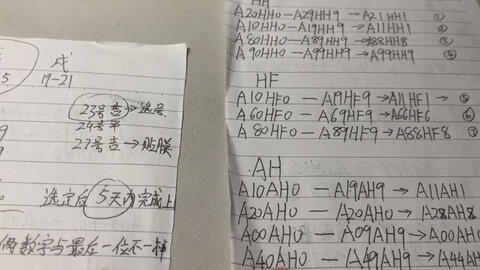 戌
17-21
23号吉→选号
24号平
27号吉→贴膜
选定后5天内完成上
两数字与最后一位不一样
HH
A20HH0—A29HH9→A21HH1 ①
A10HH0—A19HH9→A11HH1 ②
A80HH0—A89HH9→A88HH8 ③
A90HH0—A99HH9→A99HH9 ④
HF
A10HF0—A19HF9→A11HF1→⑤
A60HF0—A69HF9→A66HF6 ⑥
A80HF0—A89HF9→A88HF8 ⑦
AH
A10AH0—A19AH9→A11AH1
A20AH0—A20AH0→A28AH8
A00AH0—A09AH9→A00AH0
A40AH0—A49AH9→A44AH